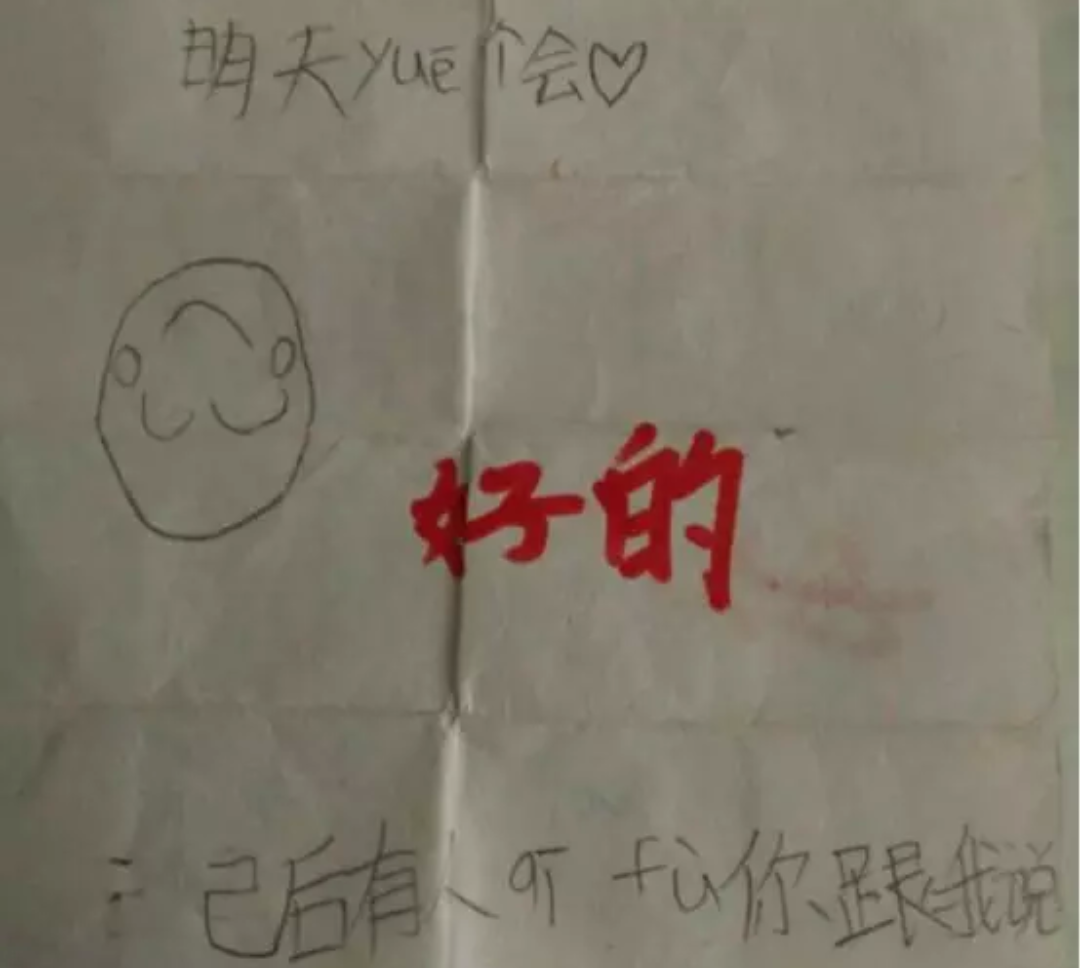 明天yuē个会♡
好的
: 己后有人qī fù你跟我说